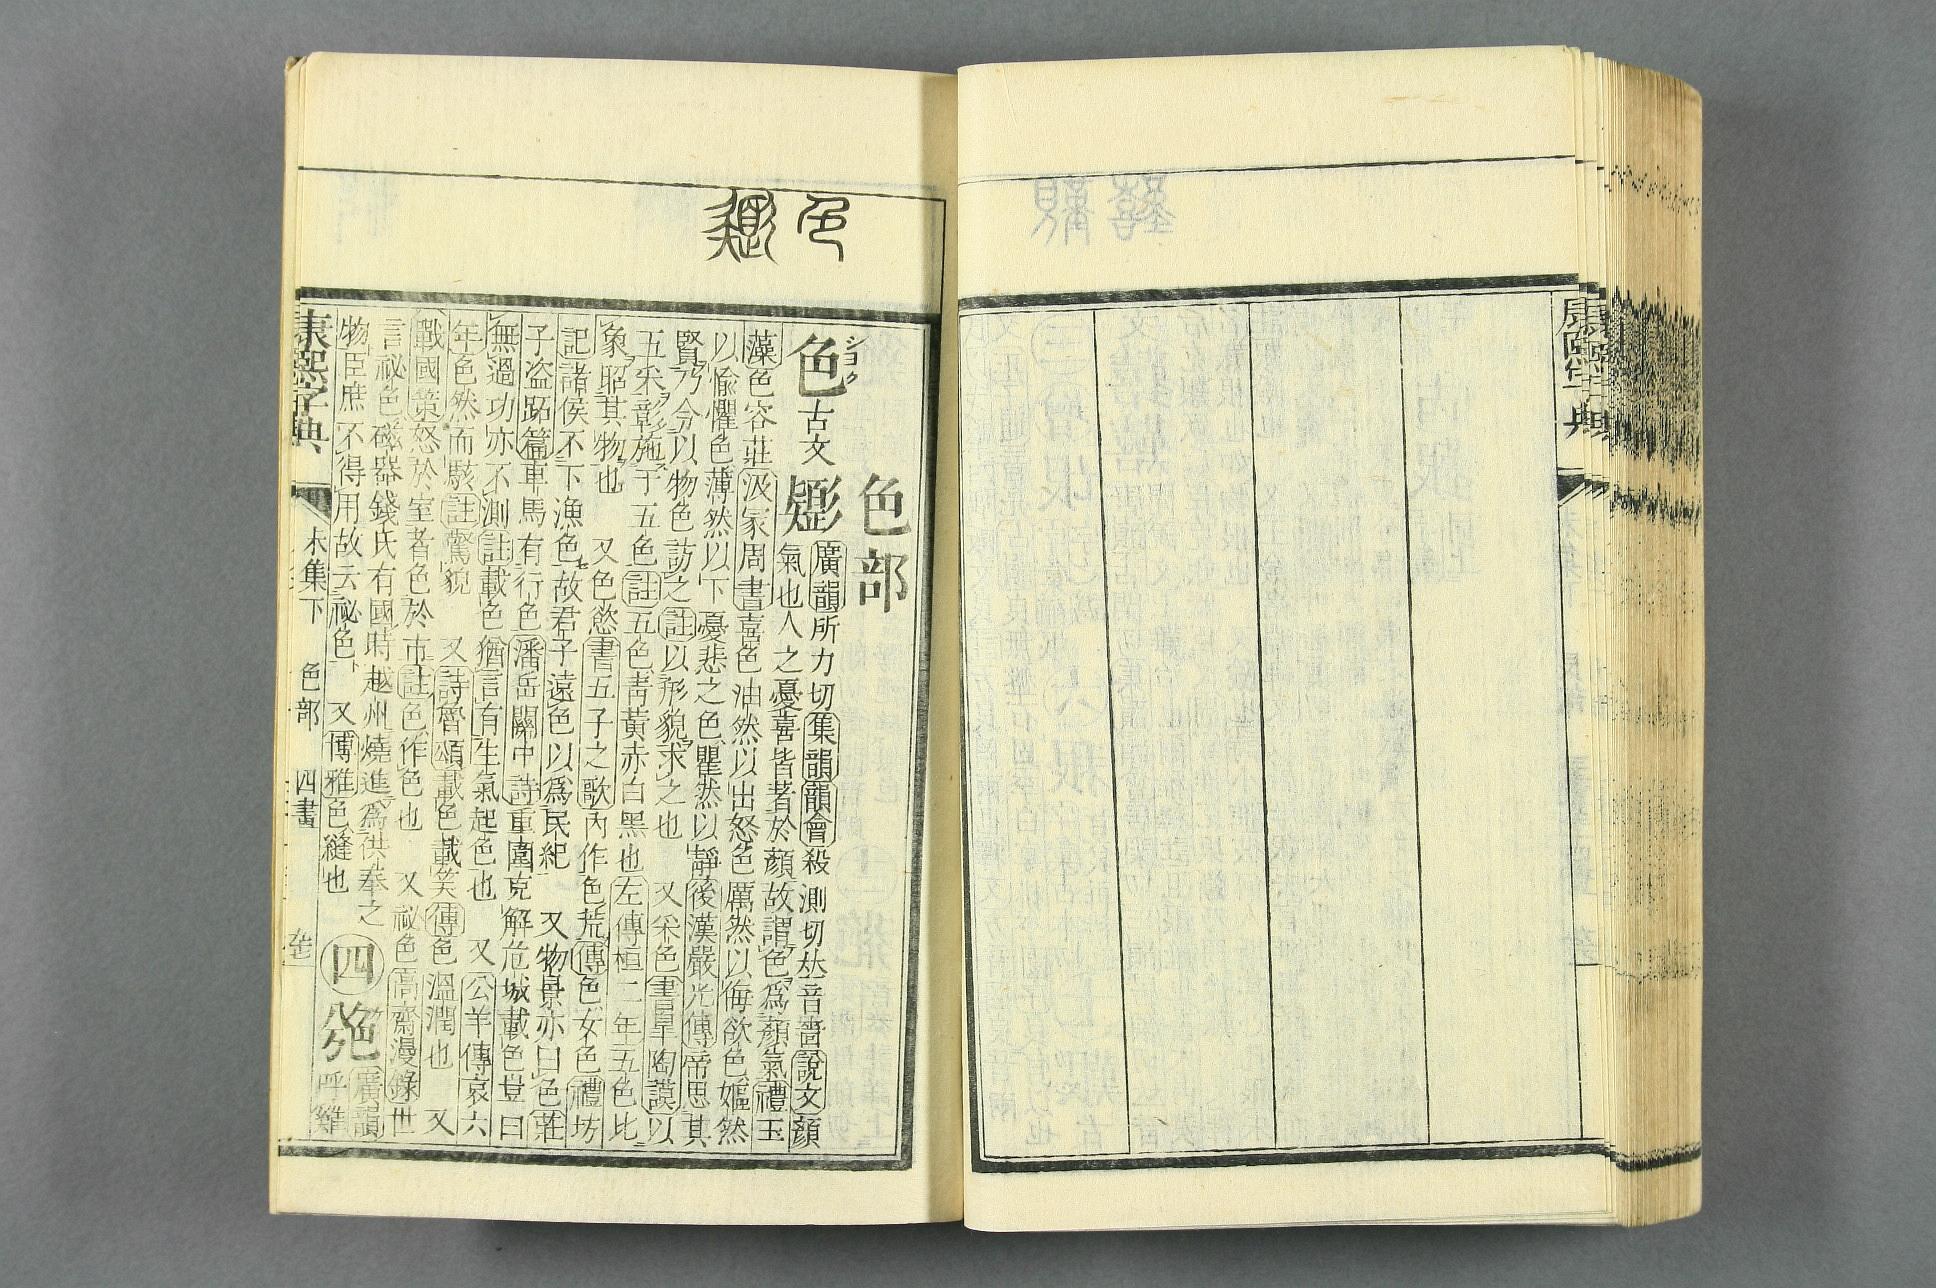 康熙字典
色
色部
色 ショク 古文 𩒵
廣韻所力切集韻韻會殺測切𠀤音嗇說文顏
氣也人之憂喜皆著於顏故謂色爲顏氣禮玉
藻色容莊汲冡周書喜色油然以出怒色厲然以侮欲色嫗然
以愉懼色薄然以下憂悲之色瞿然以靜後漢嚴光傳帝思其
賢乃令以物色訪之註以形貌求之也 又采色書皐陶謨以
五采彰施于五色註五色靑黃赤白黑也左傳桓二年五色比
象昭其物也 又色慾書五子之歌內作色荒傳色女色禮坊
記諸侯不下漁色故君子遠色以爲民紀 又物景亦曰色莊
子盜跖篇車馬有行色潘岳關中詩重圍克解危城載色豈曰
無過功亦不測註載色猶言有生氣起色也 又公羊傳哀六
年色然而駭註驚貌 又詩魯頌載色載笑傳色溫潤也 又
戰國策怒於室者色於市註色作色也 又祕色高齋漫錄世
言祕色磁器錢氏有國時越州燒進爲供奉之
物臣庶不得用故云祕色 又博雅色縫也 四 艵 廣韻
呼雞
康熙字典 未集下 色部 四畫